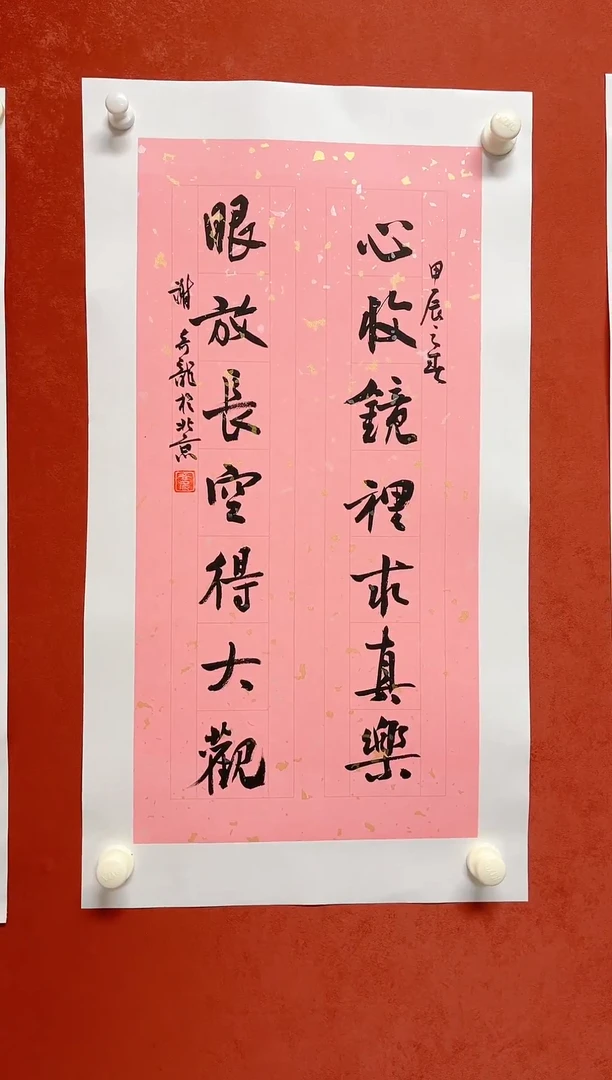 心收鏡裡求真樂
甲辰之春
眼放長空得大觀
謝奇龍於北京